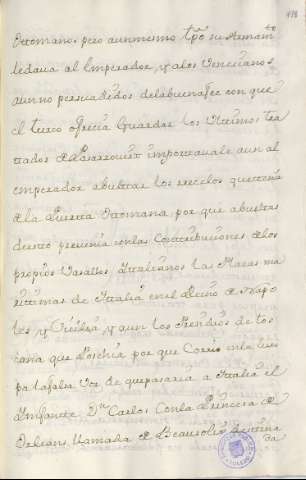 Ottomano, pero aun mismo tpō su Armamto
ledava al Emperador, y alos Venecianos
aun no persuadidos dela buena fee con que
el turco ofrecia Guardar los Ultimos tra
tados de Pasarowitz importavale aun al
emperador abultar los recelos que tenia
de la Guerra Ottomana, por que abultan
do esto prevenia con las Contribuciones de los
propios Vasallos Ittalianos las Plazas ma
ritimas de Ittalia en el Reino de Napo
les y Sicilia y aun los Presidios de tos
cana que Posehia por que Corrio en la Euro
pa la falsa Voz de que pasaria a Ittalia el
Infante Dn Carlos Con la Princesa de
Orleans llamada de Beaujolois destina
da